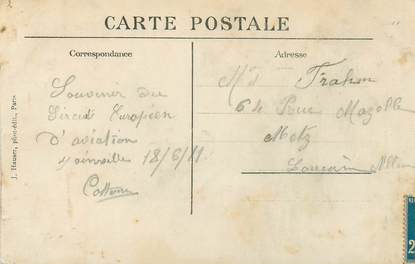 CARTE POSTALE
Correspondance
Adresse
Souvenir du
Circuit Européen
d'aviation
18/6/11
Mr Frahm
64 Rue Mazelle
Metz
Lorraine
J. Hauser, phot-édit., Paris
2